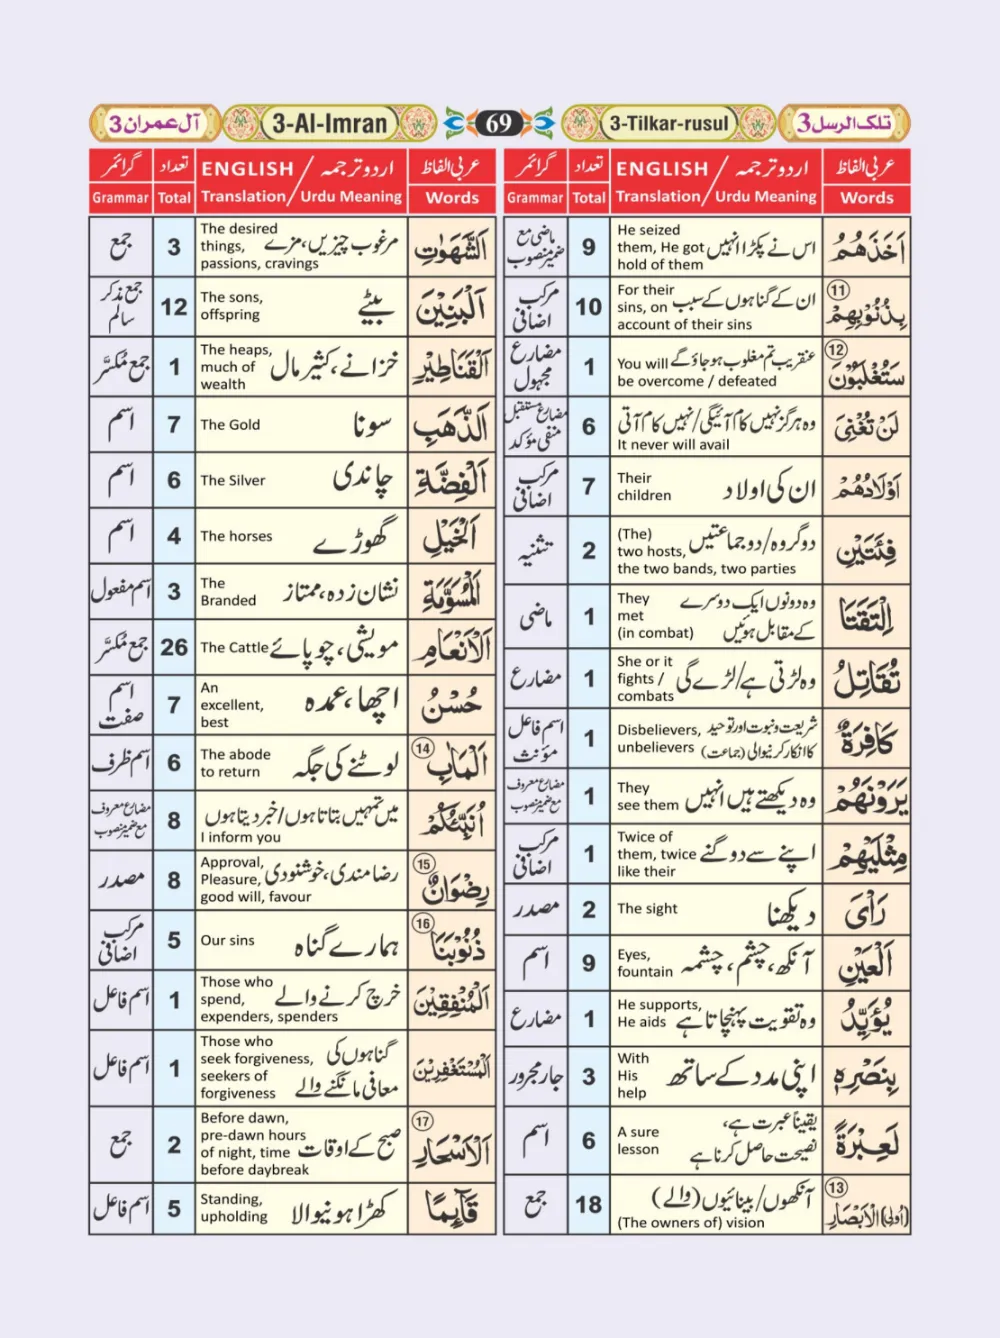 3 تلک الرسل
3-Tilkar-rusul
69
3-Al-Imran
3 آل عمران
عربی الفاظ اردو ترجمہ / ENGLISH تعداد گرائمر
Words Urdu Meaning / Translation Total Grammar
اَخَذَهُمُ اس نے پکڑا انہیں He seized them, He got hold of them 9 ماضی مع ضمیر منصوب
⑪ بِذُنُوْبِهِمْ ان کے گناہوں کے سبب For their sins, on account of their sins 10 مرکب اضافی
⑫ سَتُغْلَبُوْنَ عنقریب تم مغلوب ہو جاؤ گے You will be overcome / defeated 1 مضارع مجہول
لَنْ تُغْنِیَ وہ ہرگز نہیں کام آئیگی/نہیں کام آتی It never will avail 6 مضارع مستقبل منفی مؤکد
اَوْلَادُهُمْ ان کی اولاد Their children 7 مرکب اضافی
فِئَتَیْنِ دو گروہ/دو جماعتیں (The) two hosts, the two bands, two parties 2 تثنیہ
اِلْتَقَتَا وہ دونوں ایک دوسرے کے مقابل ہوئیں They met (in combat) 1 ماضی
تُقَاتِلُ وہ لڑتی ہے/لڑے گی She or it fights / combats 1 مضارع
کَافِرَةٌ شریعت و نبوت اور توحید کا انکار کرنیوالی (جماعت) Disbelievers, unbelievers 1 اسم فاعل مؤنث
یَرَوْنَهُمْ وہ دیکھتے ہیں انہیں They see them 1 مضارع معروف مع ضمیر منصوب
مِثْلَیْهِمْ اپنے سے دو گنے Twice of them, twice like their 1 مرکب اضافی
رَاْیَ دیکھنا The sight 2 مصدر
اَلْعَیْنِ آنکھ، چشم، چشمہ Eyes, fountain 9 اسم
یُؤَیِّدُ وہ تقویت پہنچاتا ہے He supports, He aids 1 مضارع
بِنَصْرِهٖ اپنی مدد کے ساتھ With His help 3 جار مجرور
لَعِبْرَةً یقیناً عبرت ہے، نصیحت حاصل کرنا ہے A sure lesson 6 اسم
⑬ (اُولِی) الْاَبْصَارِ آنکھوں/بینائیوں (والے) (The owners of) vision 18 جمع
عربی الفاظ اردو ترجمہ / ENGLISH تعداد گرائمر
Words Urdu Meaning / Translation Total Grammar
اَلشَّهَوٰتِ مرغوب چیزیں، مزے The desired things, passions, cravings 3 جمع
اَلْبَنِیْنَ بیٹے The sons, offspring 12 جمع مذکر سالم
اَلْقَنَاطِیْرِ خزانے، کثیر مال The heaps, much of wealth 1 جمع مُکسَّر
اَلذَّهَبِ سونا The Gold 7 اسم
اَلْفِضَّةِ چاندی The Silver 6 اسم
اَلْخَیْلِ گھوڑے The horses 4 اسم
اَلْمُسَوَّمَةِ نشان زدہ، ممتاز The Branded 3 اسم مفعول
اَلْاَنْعَامِ مویشی، چوپائے The Cattle 26 جمع مُکسَّر
حُسْنُ اچھا، عمدہ An excellent, best 7 اسم صفت
⑭ اَلْمَاٰبِ لوٹنے کی جگہ The abode to return 6 اسم ظرف
اُنَبِّئُکُمْ میں تمہیں بتاتا ہوں/خبر دیتا ہوں I inform you 8 مضارع معروف مع ضمیر منصوب
⑮ رِضْوَانٌ رضا مندی، خوشنودی Approval, Pleasure, good will, favour 8 مصدر
⑯ ذُنُوْبَنَا ہمارے گناہ Our sins 5 مرکب اضافی
اَلْمُنْفِقِیْنَ خرچ کرنے والے Those who spend, expenders, spenders 1 اسم فاعل
اَلْمُسْتَغْفِرِیْنَ گناہوں کی معافی مانگنے والے Those who seek forgiveness, seekers of forgiveness 1 اسم فاعل
⑰ اَلْاَسْحَارِ صبح کے اوقات Before dawn, pre-dawn hours of night, time before daybreak 2 جمع
قَآئِمًا کھڑا ہونیوالا Standing, upholding 5 اسم فاعل